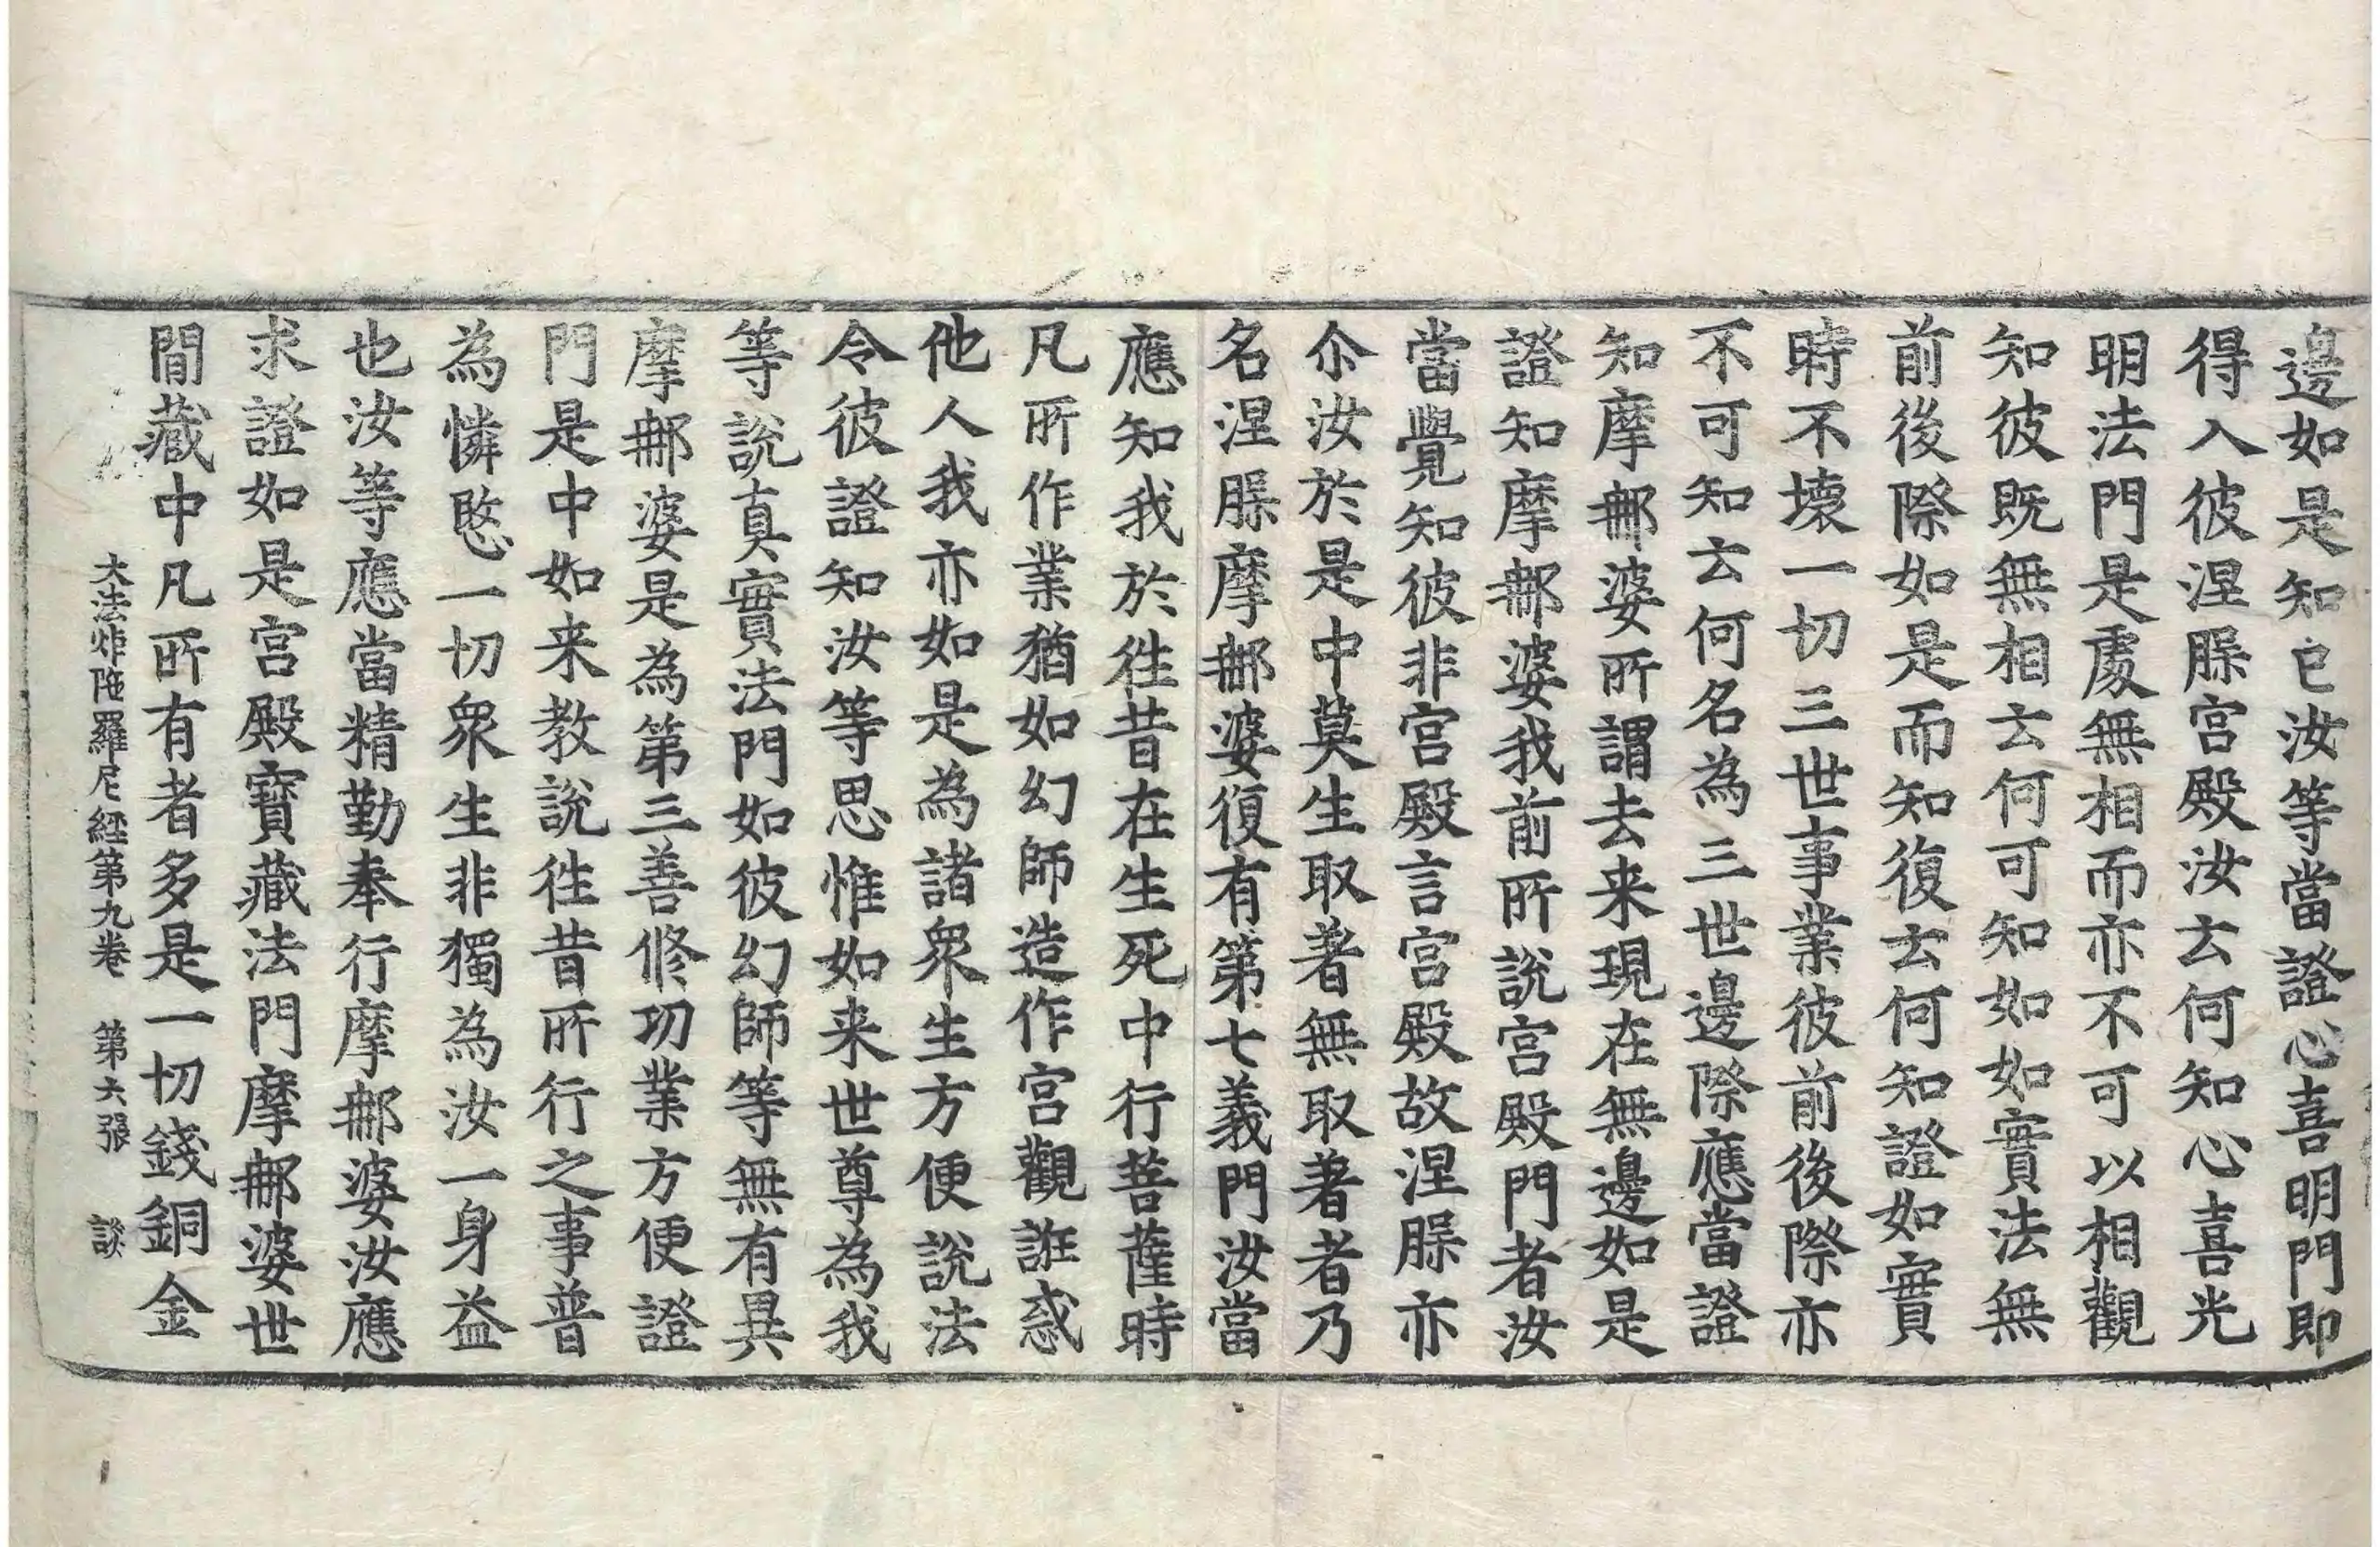 邊如是知已汝等當證心喜明門即
得入彼涅脲宮殿汝去何知心喜光
明法門是處無相而亦不可以相觀
知彼既無相去何可知如如實法無
前後際如是而知復去何知證如實
時不壞一切三世事業彼前後際亦
不可知去何名為三世邊際應當證
知摩𨚗婆所謂去来現在無邊如是
證知摩𨚗婆我前所說宮殿門者汝
當覺知彼非宮殿言宮殿故涅脲亦
尒汝於是中莫生取著無取著者乃
名涅脲摩𨚗婆復有第七義門汝當
應知我於徃昔在生死中行菩薩時
凡所作業猶如幻師造作宮觀誑惑
他人我亦如是為諸衆生方便說法
令彼證知汝等思惟如来世尊為我
等說真實法門如彼幻師等無有異
摩𨚗婆是為第三善修功業方便證
門是中如来教說徃昔所行之事普
為憐愍一切衆生非獨為汝一身益
也汝等應當精勤奉行摩𨚗婆汝應
求證如是宮殿寶藏法門摩𨚗婆世
間藏中凡所有者多是一切錢銅金
大法炬陁羅尼經第九卷 第六張 談